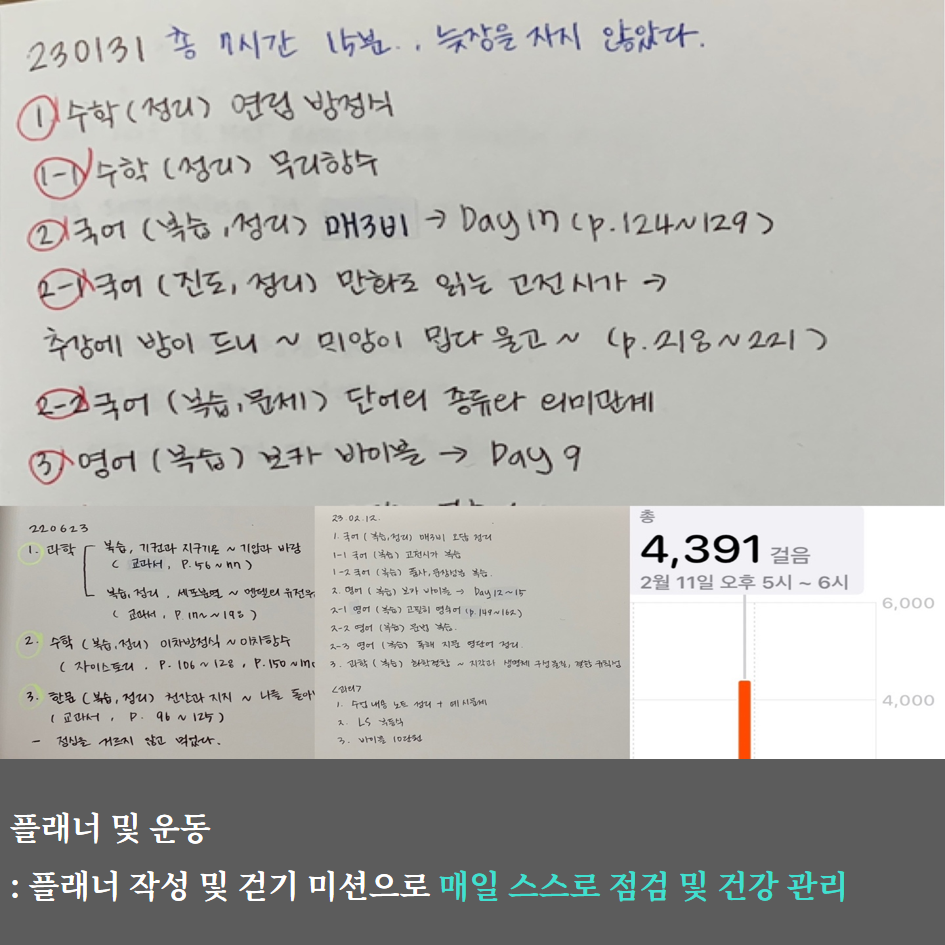 230131 총 7시간 15분.. 늦잠을 자지 않았다.
1 수학(정리) 연립 방정식
1-1 수학(정리) 무리함수
2 국어 (복습, 정리) 매3비 → Day 17 (p.124~129)
2-1 국어 (진도, 정리) 만화로 읽는 고전시가 →
추강에 밤이 드니 ~ 믜암이 맵다 울고 ~ (p.218~221)
2-2 국어 (복습, 문제) 단어의 종류와 의미관계
3. 영어 (복습) 보카 바이블 → Day 9
220623
1. 과학 복습, 기권과 지구기온 ~ 기압과 바람
(교과서, P.56~77)
복습, 정리, 세포분열 ~ 멘델의 유전
(교과서, P.172~198)
2. 수학 (복습, 정리) 이차방정식 ~ 이차함수
(자이스토리, P.106~128, P.150~
3. 한문 (복습, 정리) 천상과 지지 ~ 나를 돌아
(교과서, P. 96~125)
- 점심을 거르지 않고 먹었다.
23.02.12.
1. 국어 (복습, 정리) 매3비 오답 정리
1-1 국어 (복습) 고전시가 복습
1-2 국어 (복습) 품사, 문장성분 복습.
2. 영어 (복습) 보카 바이블 → Day 12~15
2-1 영어 (복습) 고필히 영숙어 (p.149~162)
2-2 영어 (복습) 문법 복습.
2-3 영어 (복습) 독해 지문 영단어 정리.
3. 과학 (복습) 화학결합 ~ 지각과 생명체 구성물질, 결합 규칙성
<과제>
1. 수업 내용 노트 정리 + 예시문제
2. LS
3. 바이블 10단원
총
4,391 걸음
2월 11일 오후 5시 ~ 6시
6,000
4,000
플래너 및 운동
: 플래너 작성 및 걷기 미션으로 매일 스스로 점검 및 건강 관리